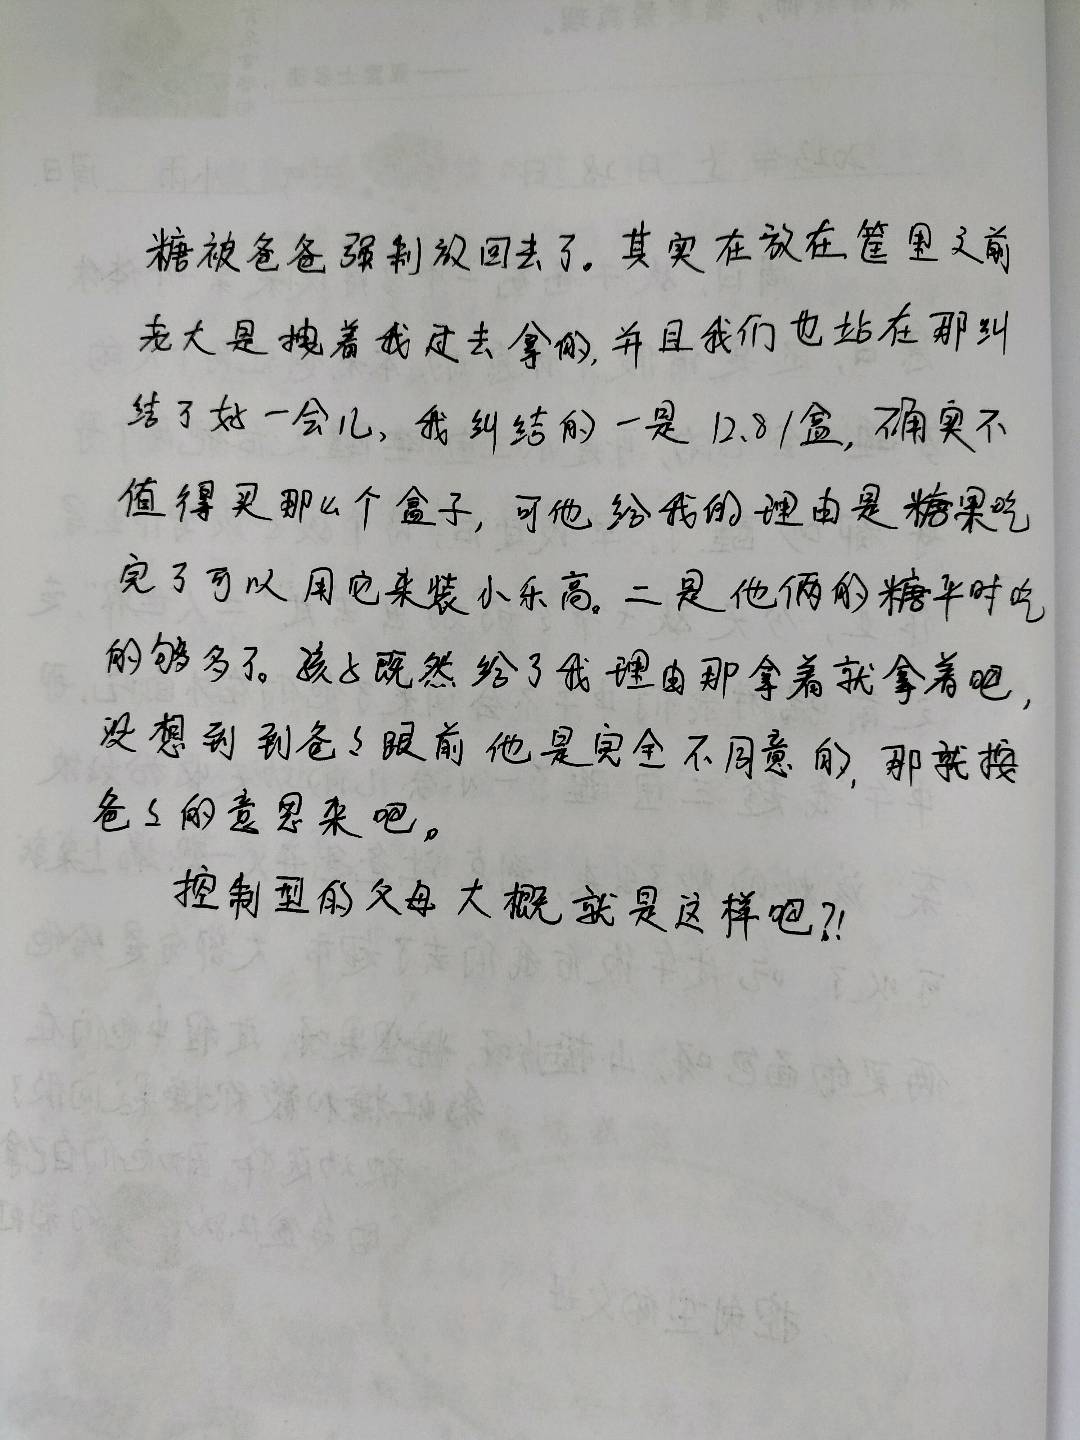 糖被爸爸强制放回去了。其实在放在筐里之前
老大是拽着我过去拿的,并且我们也站在那纠
结了好一会儿、我纠结的一是12.8/盒,确实不
值得买那么个盒子,可他给我的理由是糖果吃
完了可以用它来装小乐高。二是他俩的糖平时吃
的够多了。孩子既然给了我理由那拿着就拿着吧,
没想到到爸爸跟前他是完全不同意的,那就按
爸爸的意思来吧。
控制型的父母大概就是这样吧?!